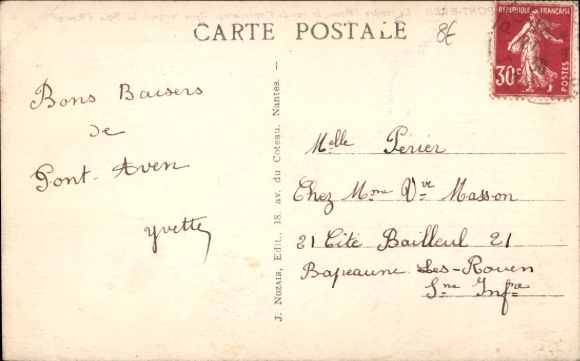 CARTE POSTALE
8€
REPUBLIQUE FRANÇAISE
30c
POSTES
Bons Baisers
de
Pont-Aven
Yvette
J. Nozais, Edit., 18, av. du Coteau, Nantes.
Melle Périer
Chez Mme Vve Masson
21 Cité Bailleul 21
Bapeaume Les-Rouen
Sne Infre